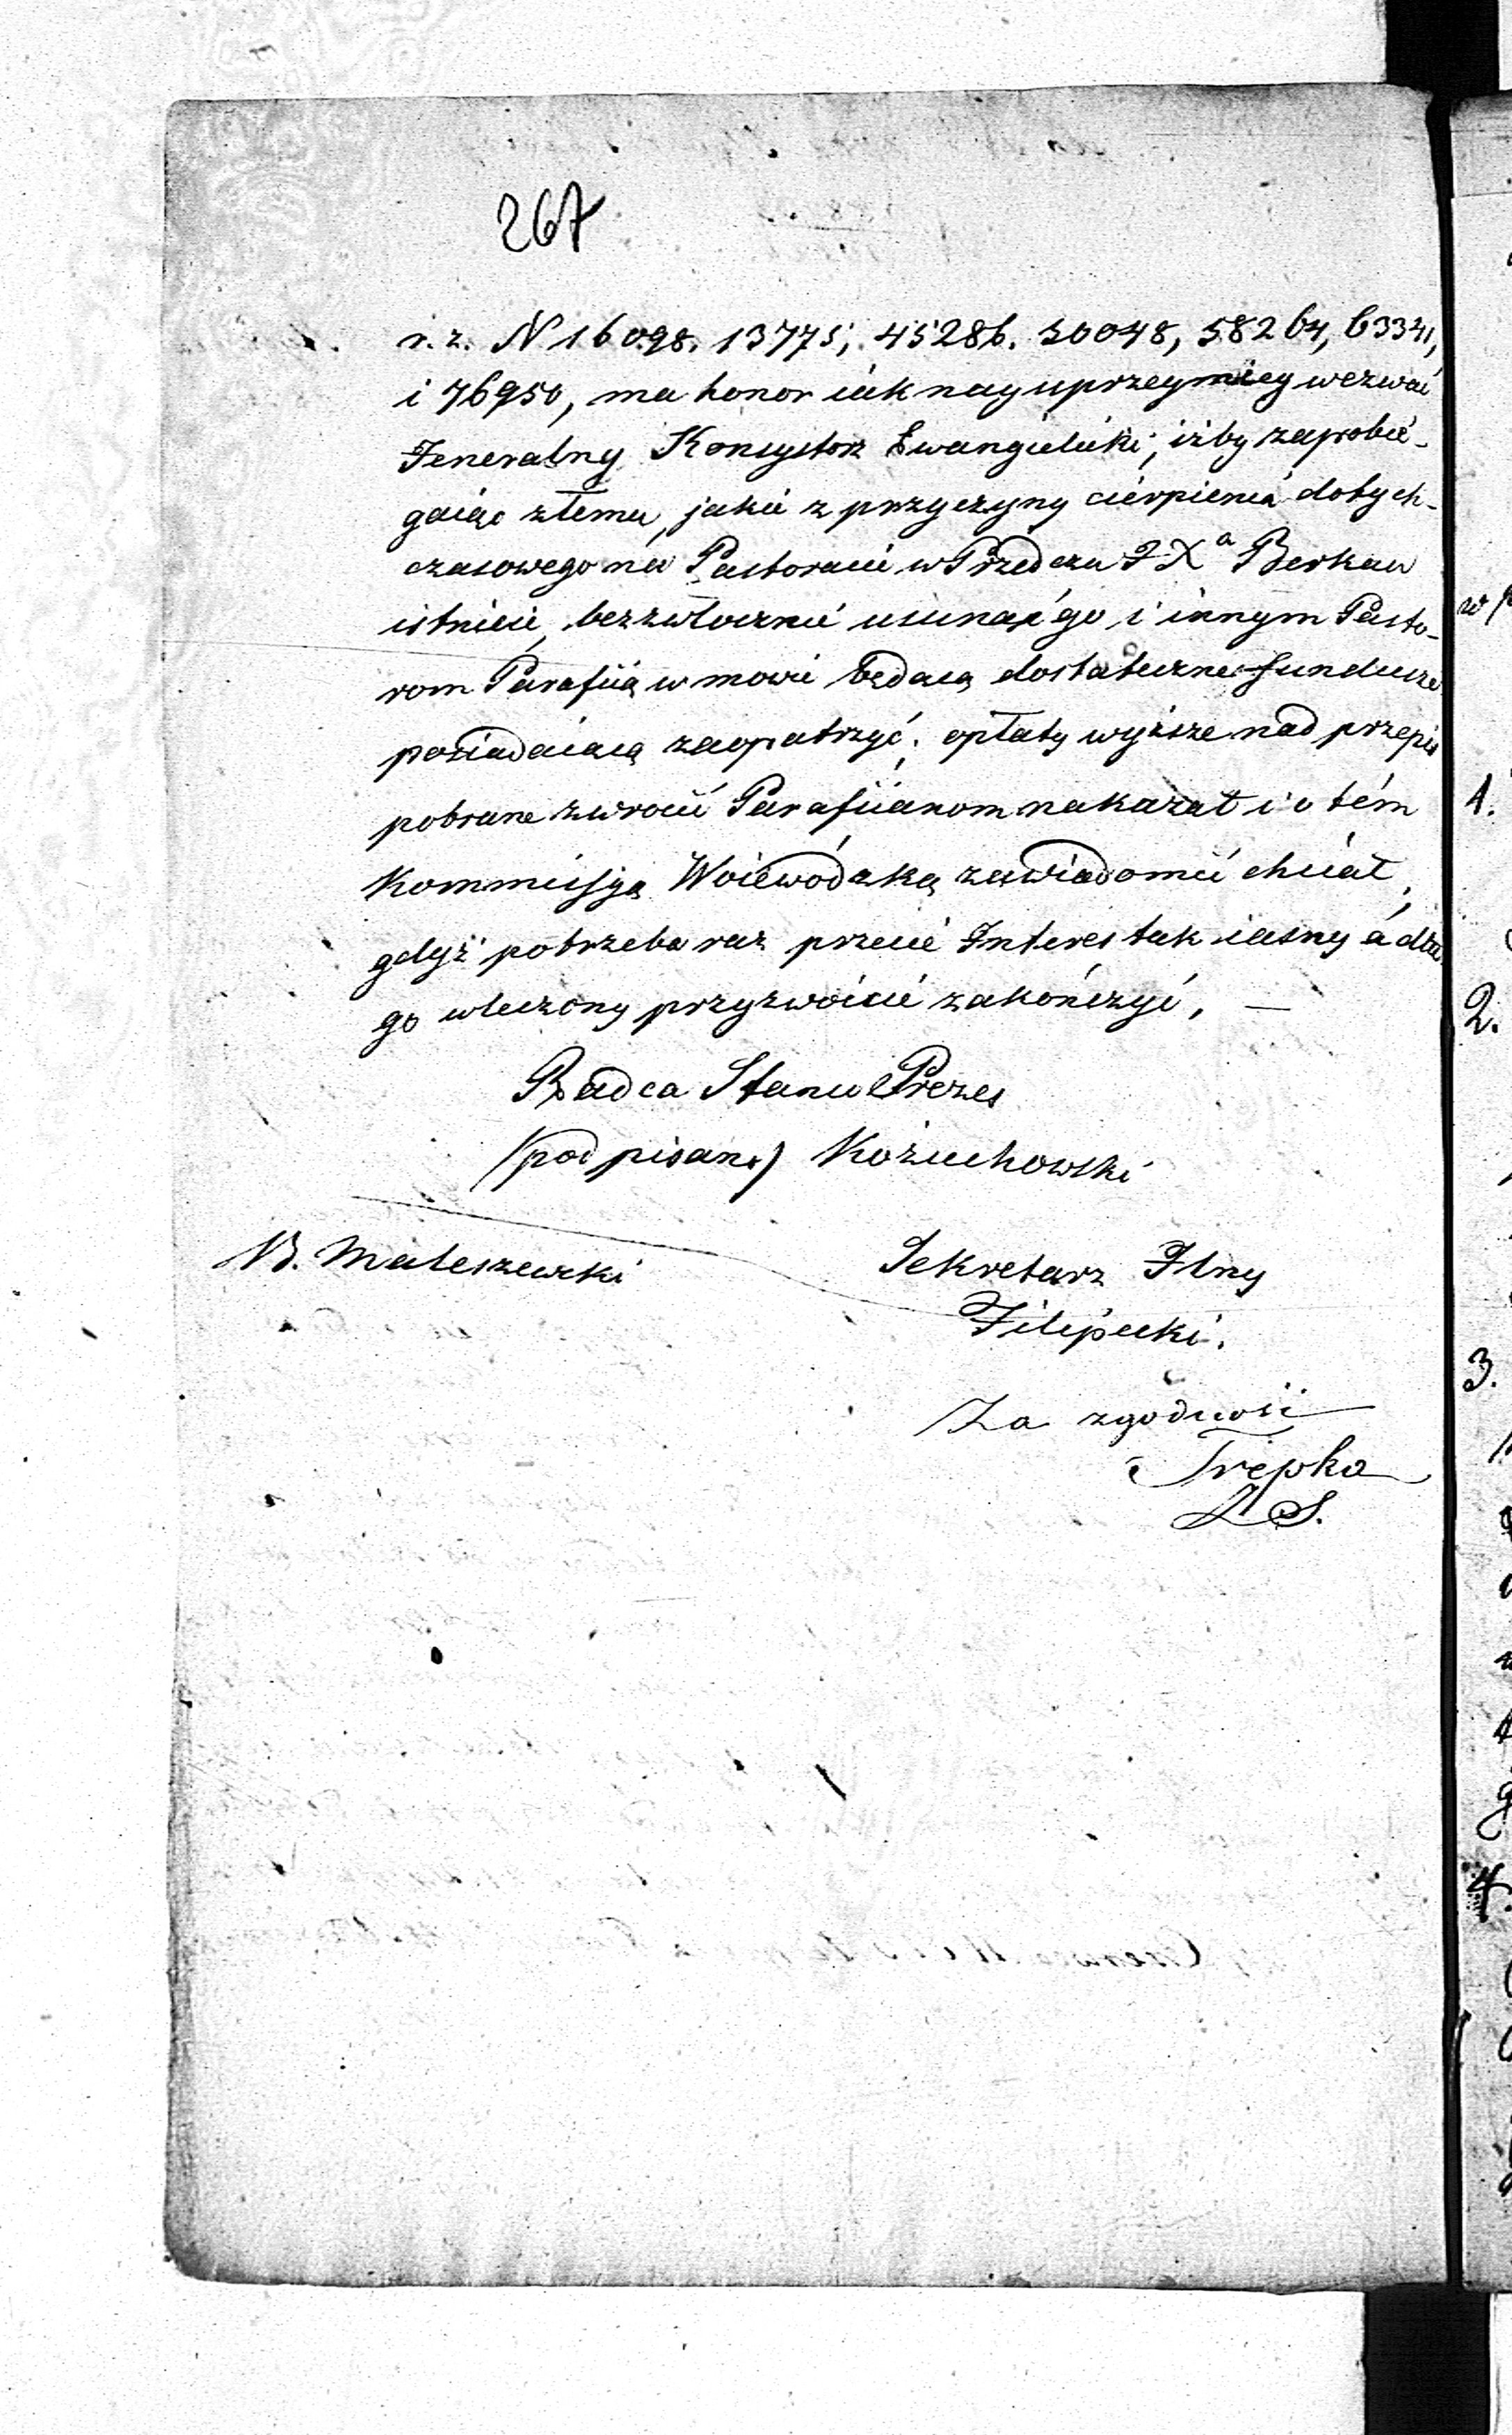 267
r. z. N 16098. 13775, 45286. 30048, 58264, 63341,
i 76950, ma honor iak nayuprzeymiey wezwać
Jeneralny Konsystorz Ewangielicki, iżby zapobie-
gaiąc złemu, jakie z przyczyny cierpienia dotych-
czasowego na Pastoracie w Przedczu JXa Berkau
istnieie, bezzwłocznie usunął go i innym Pasto-
rem Parafiią w mowie będącą dostateczne fundusze
posiadaiącą zaopatrzyć, opłaty wyższe nad przepis
pobrane zwrócić Parafiianom nakazał i o tém
Kommissyą Woiewódzką zawiadomić chciał,
gdyż potrzeba raz przecie Interes tak iasny a dłu
go wleczony przyzwoicie zakończyć, —
Radca Stanu Prezes
(podpisano) Kożuchowski
Maleszewski
Sekretarz Jlny
Filipecki.
Za zgodność
Trepka
Z S.
w p
1.
2.
3.
4.